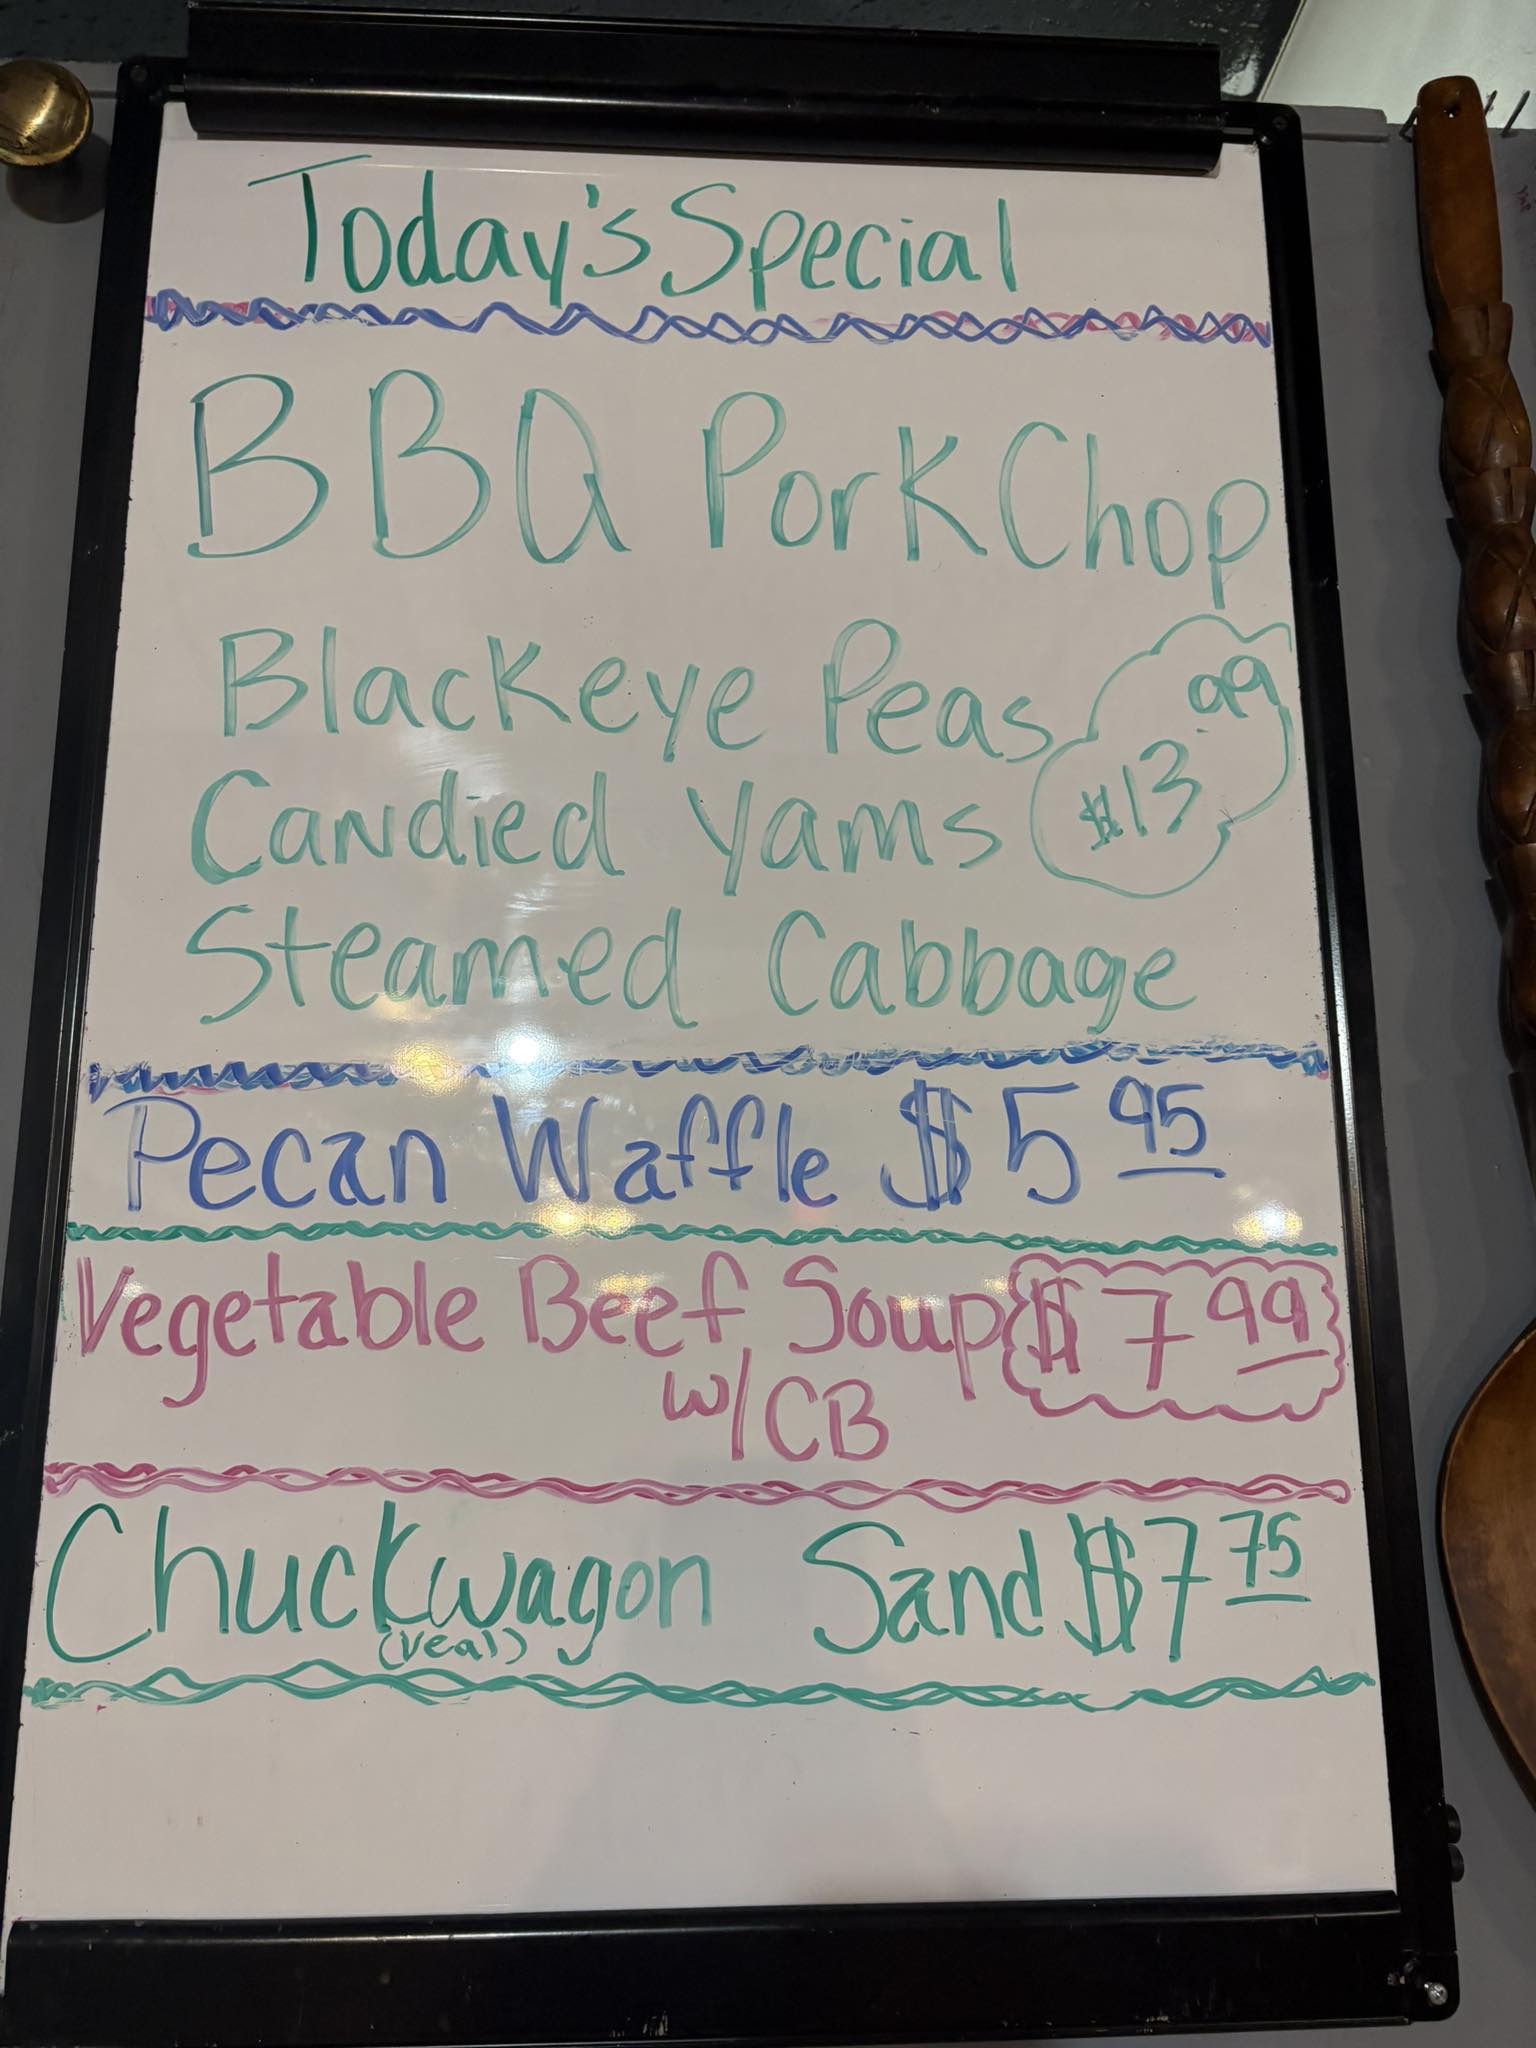 Today's Special
BBQ Pork Chop
Blackeye Peas
$13.99
Candied Yams
Steamed Cabbage
Pecan Waffle $5 95
Vegetable Beef Soup $7 99
w/CB
Chuckwagon Sand $7 75
(veal)